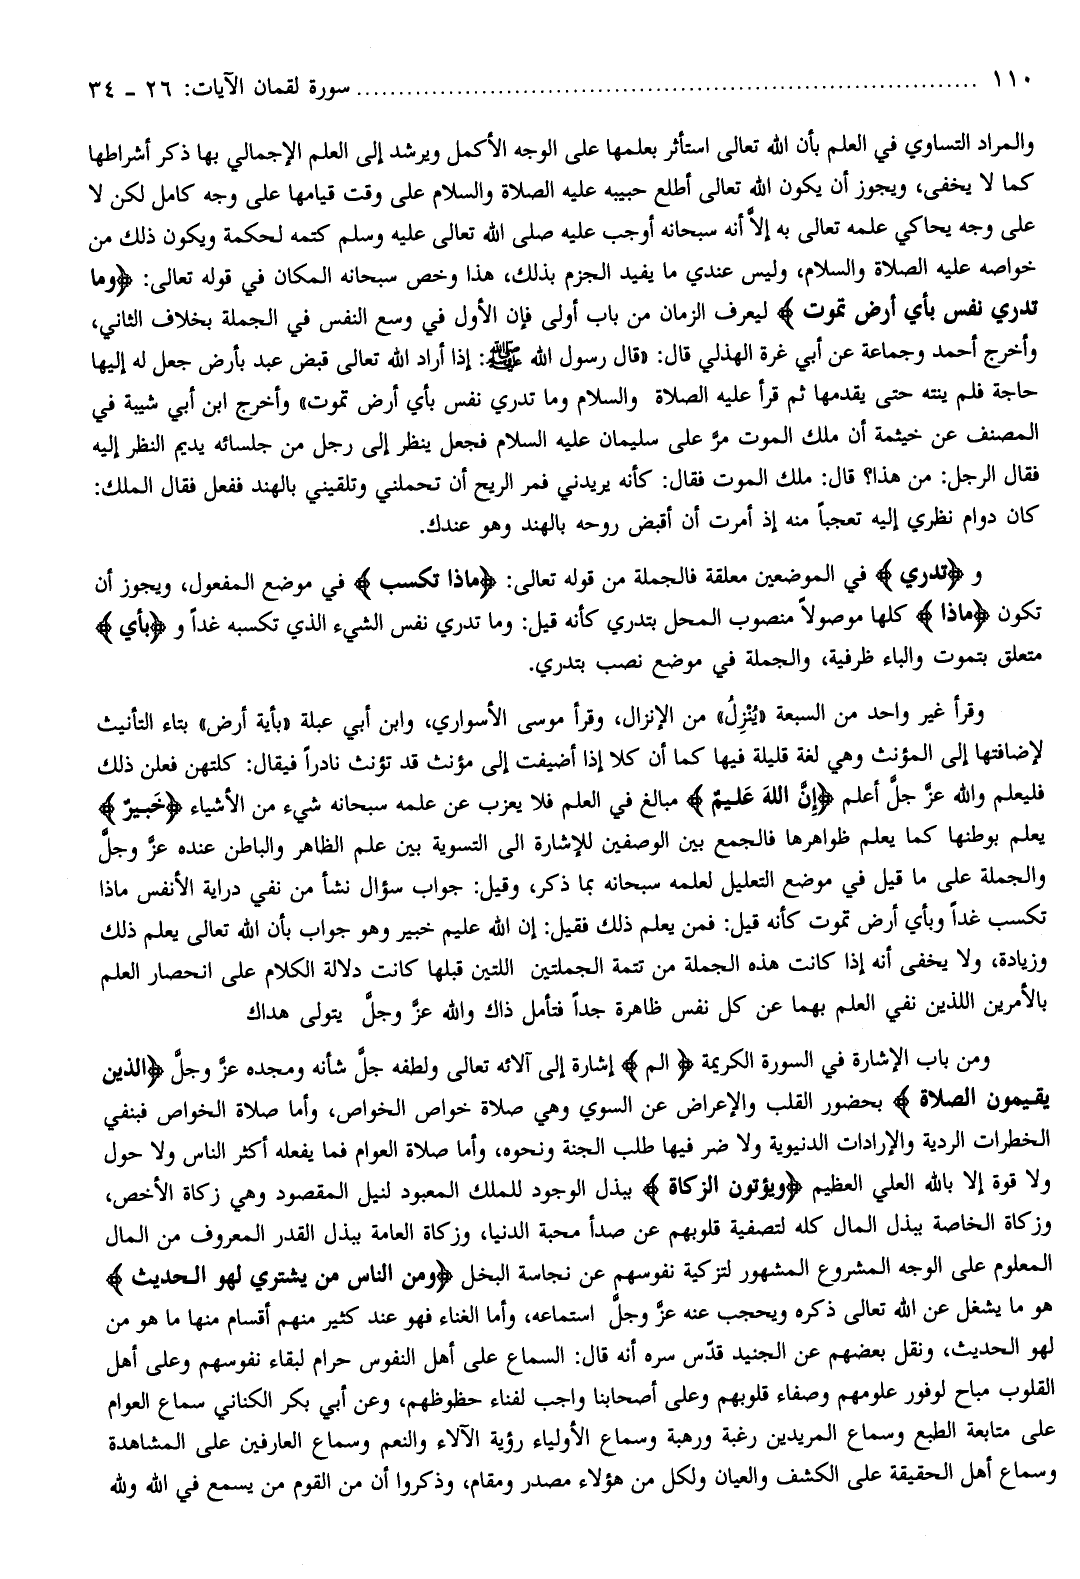 ١١٠ ........................................................................... سورة لقمان الآيات: ٢٦ ـ ٣٤
والمراد التساوي في العلم بأن الله تعالى استأثر بعلمها على الوجه الأكمل ويرشد إلى العلم الإجمالي بها ذكر أشراطها
كما لا يخفى، ويجوز أن يكون الله تعالى أطلع حبيبه عليه الصلاة والسلام على وقت قيامها على وجه كامل لكن لا
على وجه يحاكي علمه تعالى به إلاَّ أنه سبحانه أوجب عليه صلى الله تعالى عليه وسلم كتمه لحكمة ويكون ذلك من
خواصه عليه الصلاة والسلام، وليس عندي ما يفيد الجزم بذلك، هذا وخص سبحانه المكان في قوله تعالى: ﴿وما
تدري نفس بأي أرض تموت﴾ ليعرف الزمان من باب أولى فإن الأول في وسع النفس في الجملة بخلاف الثاني،
وأخرج أحمد وجماعة عن أبي غرة الهذلي قال: «قال رسول الله ﷺ: إذا أراد الله تعالى قبض عبد بأرض جعل له إليها
حاجة فلم ينته حتى يقدمها ثم قرأ عليه الصلاة والسلام وما تدري نفس بأي أرض تموت» وأخرج ابن أبي شيبة في
المصنف عن خيثمة أن ملك الموت مرَّ على سليمان عليه السلام فجعل ينظر إلى رجل من جلسائه يديم النظر إليه
فقال الرجل: من هذا؟ قال: ملك الموت فقال: كأنه يريدني فمر الريح أن تحملني وتلقيني بالهند ففعل فقال الملك:
كان دوام نظري إليه تعجباً منه إذ أمرت أن أقبض روحه بالهند وهو عندك.
و ﴿تدري﴾ في الموضعين معلقة فالجملة من قوله تعالى: ﴿ماذا تكسب﴾ في موضع المفعول، ويجوز أن
تكون ﴿ماذا﴾ كلها موصولاً منصوب المحل بتدري كأنه قيل: وما تدري نفس الشيء الذي تكسبه غداً و ﴿بأي﴾
متعلق بتموت والباء ظرفية، والجملة في موضع نصب بتدري.
وقرأ غير واحد من السبعة «يُنْزِلُ» من الإنزال، وقرأ موسى الأسواري، وابن أبي عبلة «بأية أرض» بتاء التأنيث
لإضافتها إلى المؤنث وهي لغة قليلة فيها كما أن كلا إذا أضيفت إلى مؤنث قد تؤنث نادراً فيقال: كلتهن فعلن ذلك
فليعلم والله عزَّ جلَّ أعلم ﴿إنَّ اللهَ عَليمٌ﴾ مبالغ في العلم فلا يعزب عن علمه سبحانه شيء من الأشياء ﴿خَبيرٌ﴾
يعلم بوطنها كما يعلم ظواهرها فالجمع بين الوصفين للإشارة الى التسوية بين علم الظاهر والباطن عنده عزَّ وجلَّ
والجملة على ما قيل في موضع التعليل لعلمه سبحانه بما ذكر، وقيل: جواب سؤال نشأ من نفي دراية الأنفس ماذا
تكسب غداً وبأي أرض تموت كأنه قيل: فمن يعلم ذلك فقيل: إن الله عليم خبير وهو جواب بأن الله تعالى يعلم ذلك
وزيادة، ولا يخفى أنه إذا كانت هذه الجملة من تتمة الجملتين اللتين قبلها كانت دلالة الكلام على انحصار العلم
بالأمرين اللذين نفي العلم بهما عن كل نفس ظاهرة جداً فتأمل ذاك والله عزَّ وجلَّ يتولى هداك
ومن باب الإشارة في السورة الكريمة ﴿الم﴾ إشارة إلى آلائه تعالى ولطفه جلَّ شأنه ومجده عزَّ وجلَّ ﴿الذين
يقيمون الصلاة﴾ بحضور القلب والإعراض عن السوي وهي صلاة خواص الخواص، وأما صلاة الخواص فبنفي
الخطرات الردية والإرادات الدنيوية ولا ضر فيها طلب الجنة ونحوه، وأما صلاة العوام فما يفعله أكثر الناس ولا حول
ولا قوة إلا بالله العلي العظيم ﴿ويؤتون الزكاة﴾ ببذل الوجود للملك المعبود لنيل المقصود وهي زكاة الأخص،
وزكاة الخاصة ببذل المال كله لتصفية قلوبهم عن صدأ محبة الدنيا، وزكاة العامة ببذل القدر المعروف من المال
المعلوم على الوجه المشروع المشهور لتزكية نفوسهم عن نجاسة البخل ﴿ومن الناس من يشتري لهو الحديث﴾
هو ما يشغل عن الله تعالى ذكره ويحجب عنه عزَّ وجلَّ استماعه، وأما الغناء فهو عند كثير منهم أقسام منها ما هو من
لهو الحديث، ونقل بعضهم عن الجنيد قدّس سره أنه قال: السماع على أهل النفوس حرام لبقاء نفوسهم وعلى أهل
القلوب مباح لوفور علومهم وصفاء قلوبهم وعلى أصحابنا واجب لفناء حظوظهم، وعن أبي بكر الكناني سماع العوام
على متابعة الطبع وسماع المريدين رغبة ورهبة وسماع الأولياء رؤية الآلاء والنعم وسماع العارفين على المشاهدة
وسماع أهل الحقيقة على الكشف والعيان ولكل من هؤلاء مصدر ومقام، وذكروا أن من القوم من يسمع في الله ولله